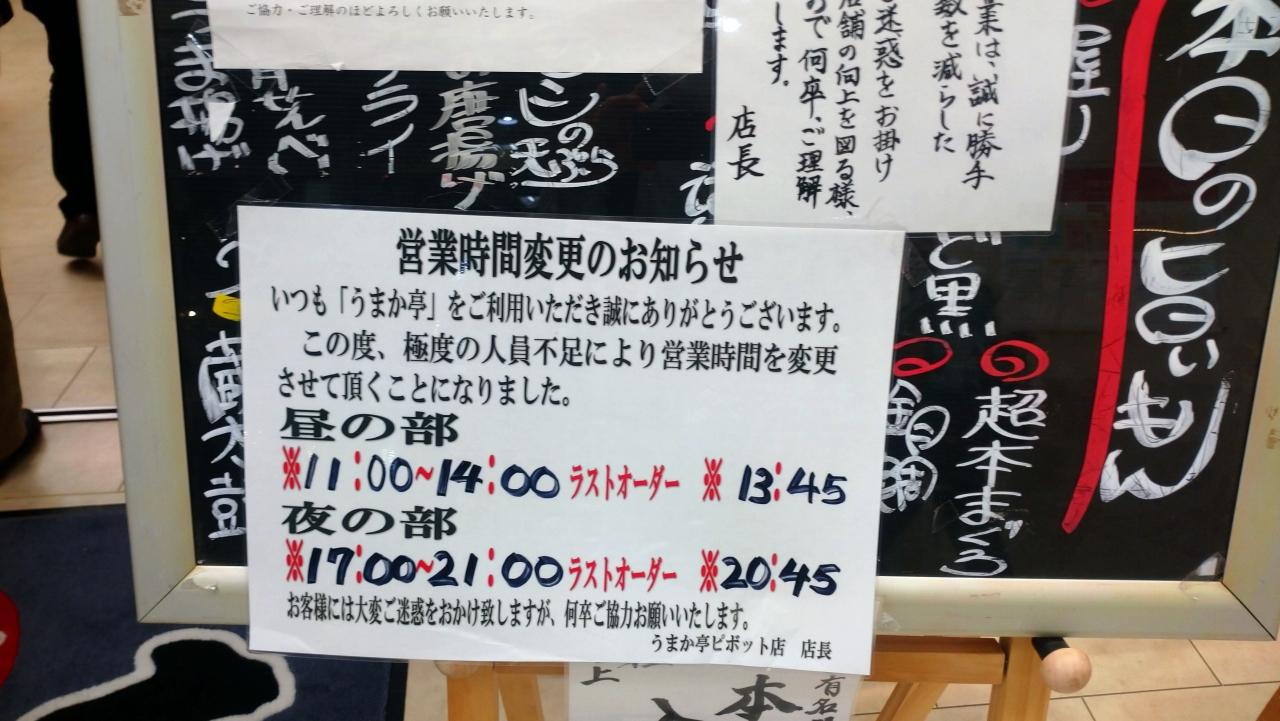 ご協力・ご理解のほどよろしくお願いいたします。
業は、誠に勝手
数を減らした
迷惑をお掛け
店舗の向上を図る様、
ので何卒、ご理解
します。
店長
本日の旨いもん
超本まぐろ
ど黒
の天ぷら
唐揚げ
フライ
せんべい
つま揚げ
蔵大豆
営業時間変更のお知らせ
いつも「うまか亭」をご利用いただき誠にありがとうございます。
この度、極度の人員不足により営業時間を変更
させて頂くことになりました。
昼の部
※11:00~14:00 ラストオーダー ※ 13:45
夜の部
※17:00~21:00 ラストオーダー ※20:45
お客様には大変ご迷惑をおかけ致しますが、何卒ご協力お願いいたします。
うまか亭ピボット店 店長
有名
本
上